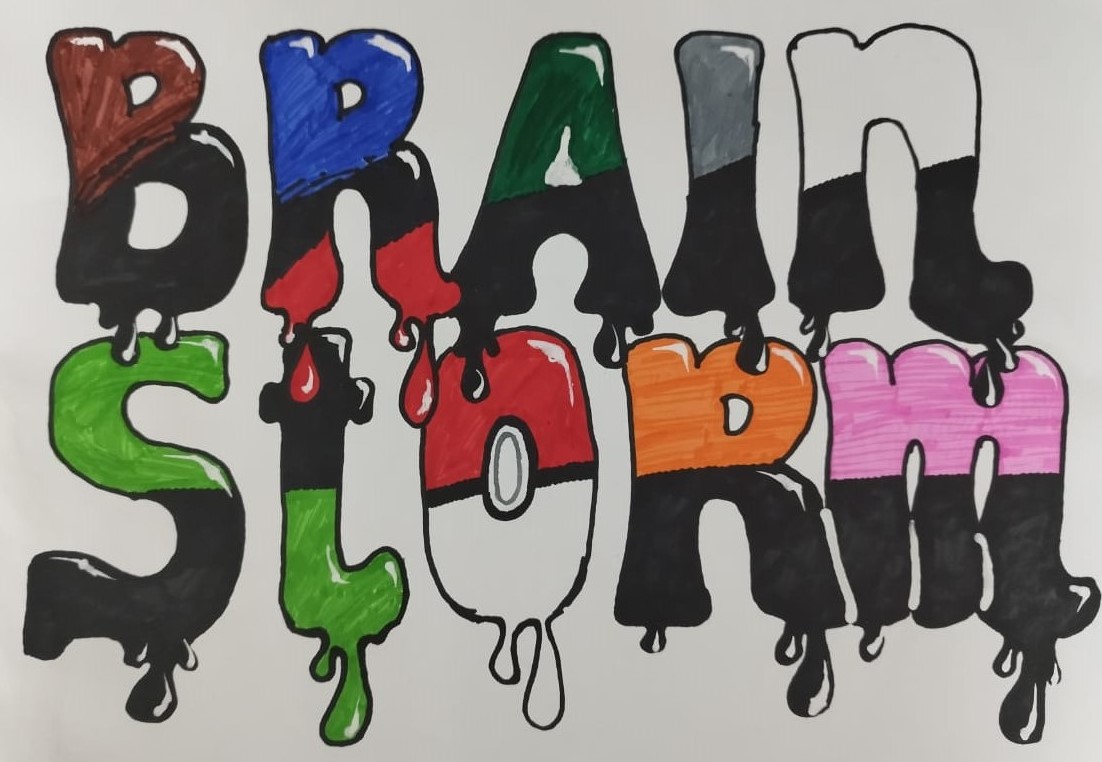 BRAIn
StORm